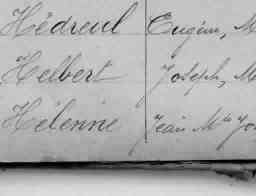 Hédreul Eugène, M
Helbert Joseph, M
Hélenne Jean Mie Jos